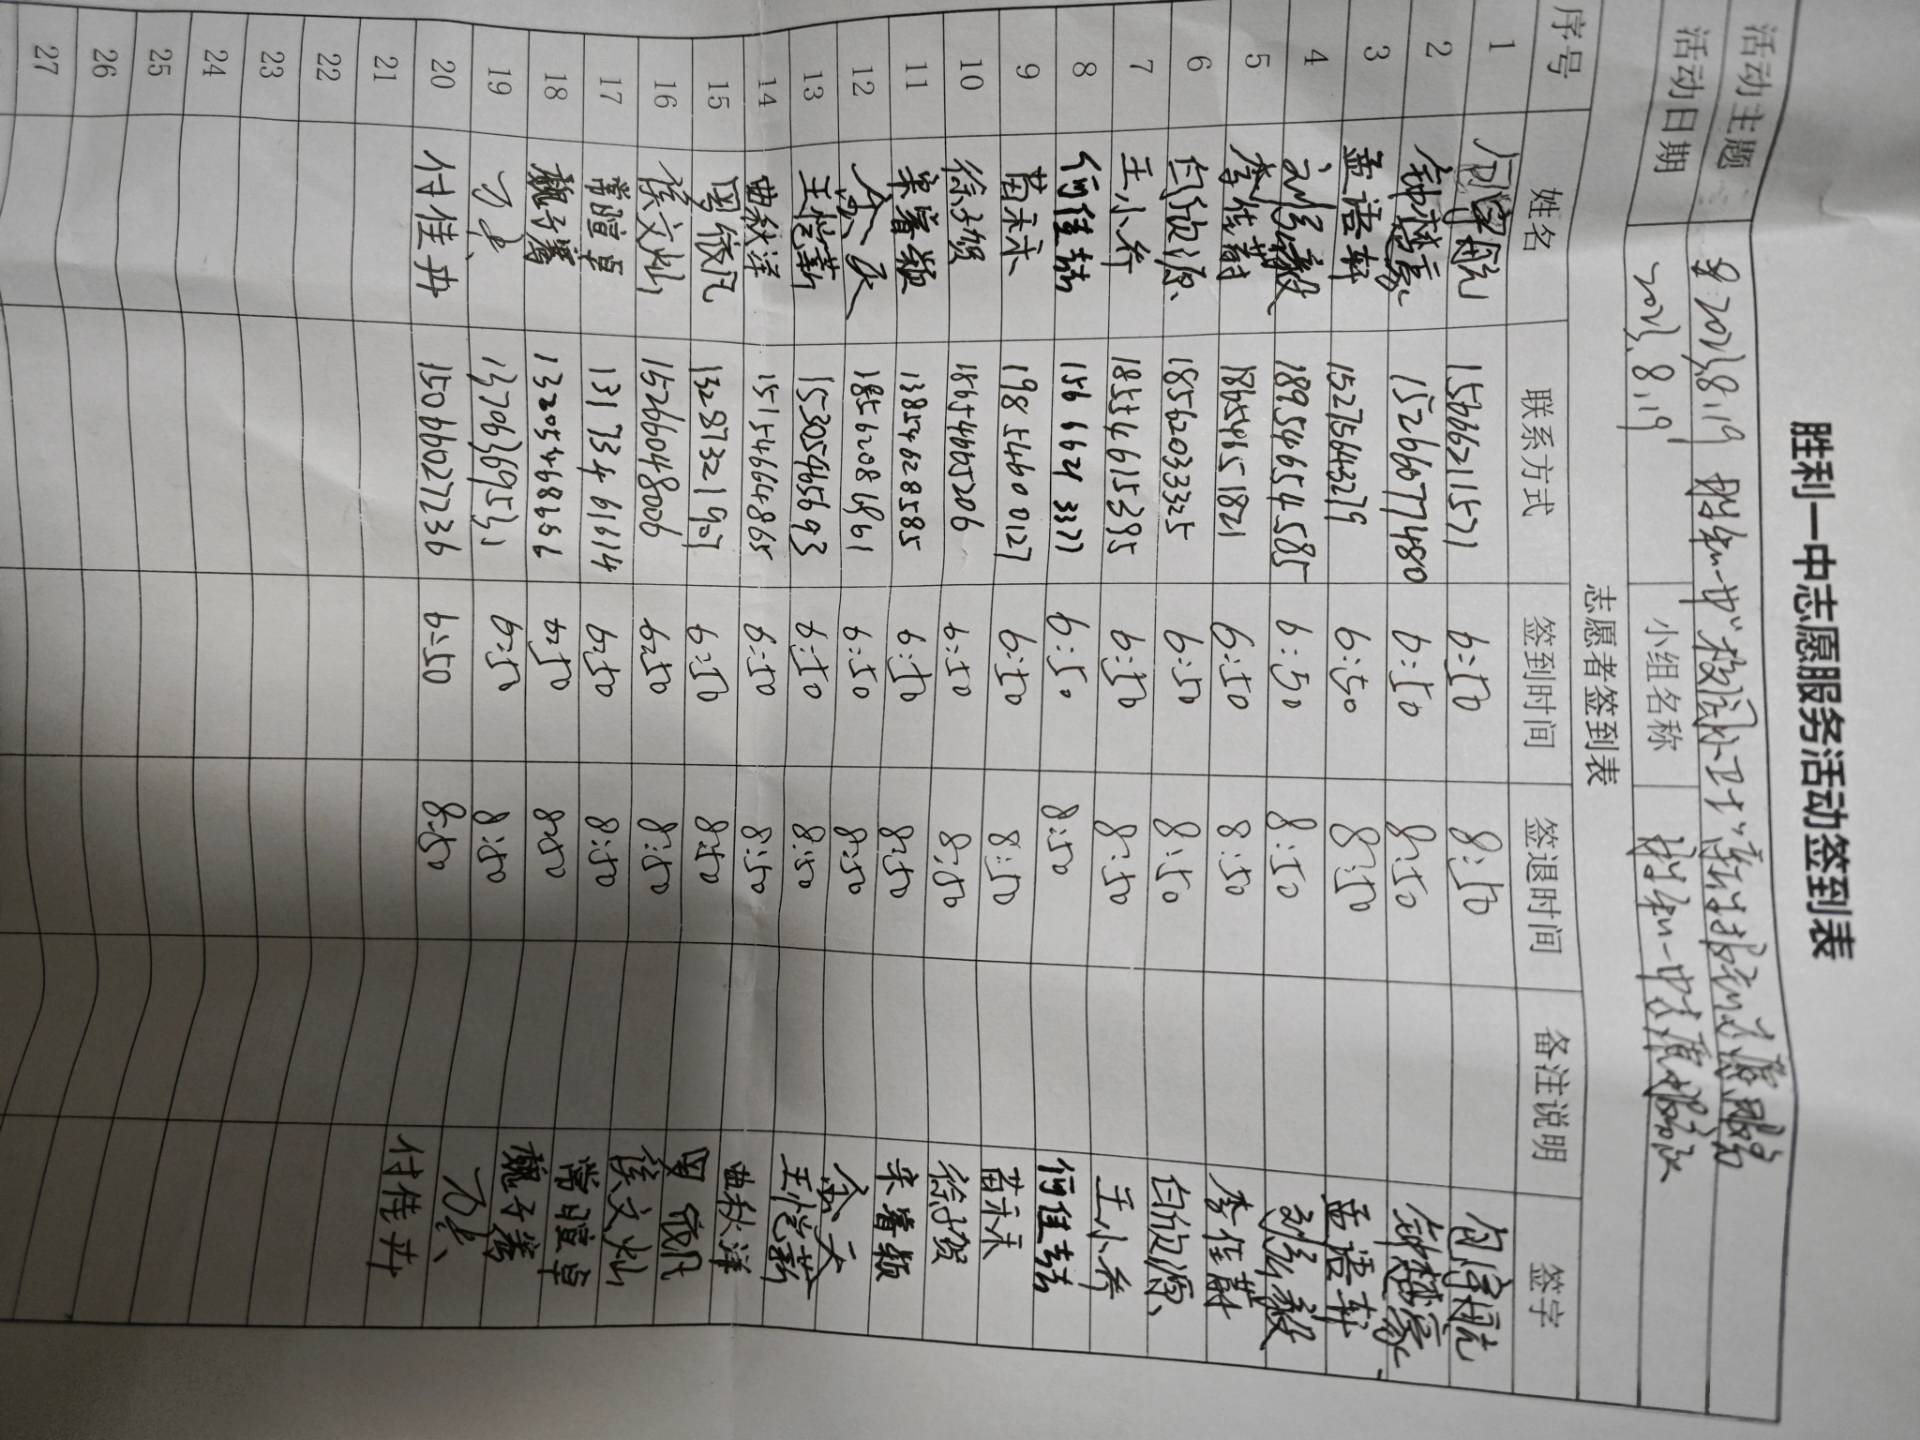 胜利一中志愿服务活动签到表
活动主题 2023.8.19 胜利一中"校园小卫士"系列活动志愿服务
活动日期 2023.8.19 小组名称 胜利一中志愿服务队
志愿者签到表
序号 姓名 联系方式 签到时间 签退时间 备注说明 签字
1 15666211571 6:50 8:50
2 钟楚豪 15266677480 6:50 8:50 钟楚豪
3 孟语轩 15275643279 6:50 8:50 孟语轩
4 刘弘毅 18954654585 6:50 8:50 刘弘毅
5 李佳蔚 18654651821 6:50 8:50 李佳蔚
6 18562033325 6:50 8:50
7 王小乔 18554615395 6:50 8:50 王小乔
8 何佳喆 156 6624 3377 6:50 8:50 何佳喆
9 苗禾禾 19854600127 6:50 8:50 苗禾禾
10 徐子贺 18654665206 6:50 8:50 徐子贺
11 宋睿颖 13854628585 6:50 8:50 宋睿颖
12 18562081861 6:50 8:50
13 王悦蕲 15305465693 6:50 8:50 王悦蕲
14 曲秋洋 15154664865 6:50 8:50 曲秋洋
15 6:50 8:50
16 侯文灿 15266048006 6:50 8:50 侯文灿
17 常暄卓 13173461614 6:50 8:50 常暄卓
18 魏子骞 13205468696 6:50 8:50 魏子骞
19 6:50 8:50
20 付佳卉 15066027236 6:50 8:50 付佳卉
21
22
23
24
25
26
27